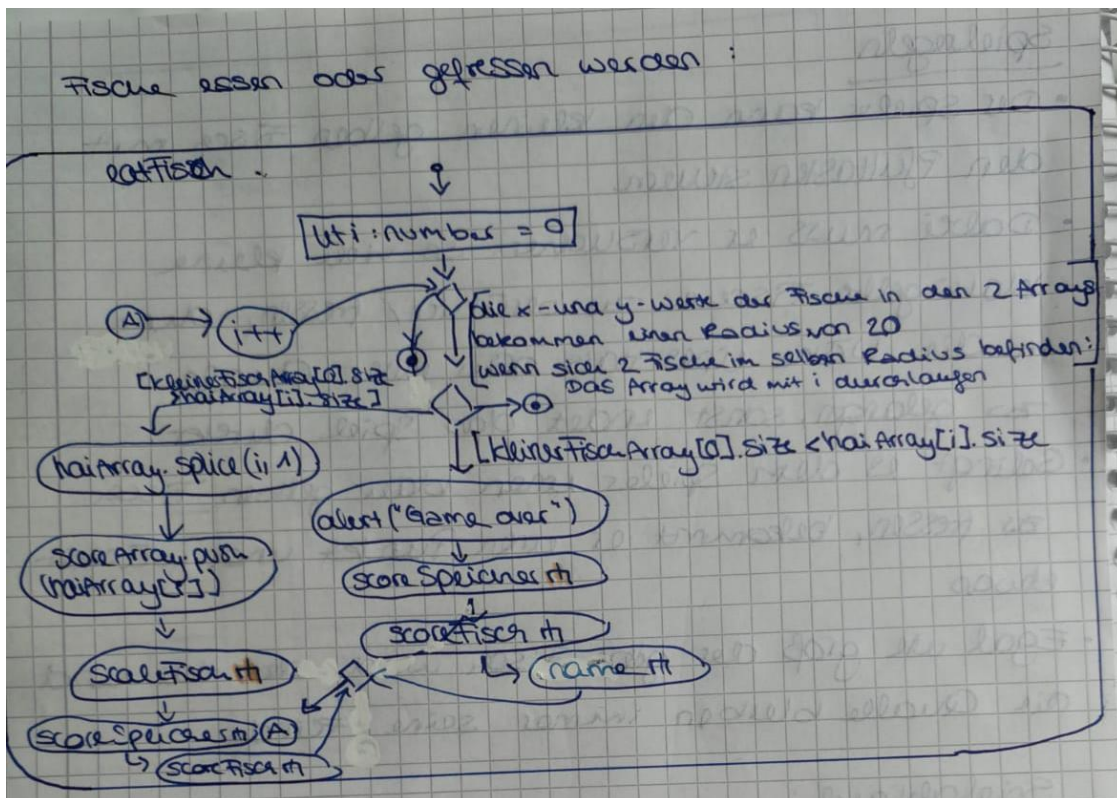 Fische essen oder gefressen werden :
eatFisch
let i : number = 0
A
i++
[die x-und y-Werte der Fische in den 2 Arrays
bekommen einen Radius von 20
wenn sich 2 Fische im selben Radius befinden:]
Das Array wird mit i durchlaufen
[kleinerFischArray[0].size
>haiArray[i].size]
[kleinerFischArray[0].size <haiArray[i].size
haiArray.splice(i,1)
alert("Game over")
scoreArray.push
(haiArray[i])
scoreSpeicher
scoreFisch
scaleFisch
name
scoreSpeicher
A
scoreFisch